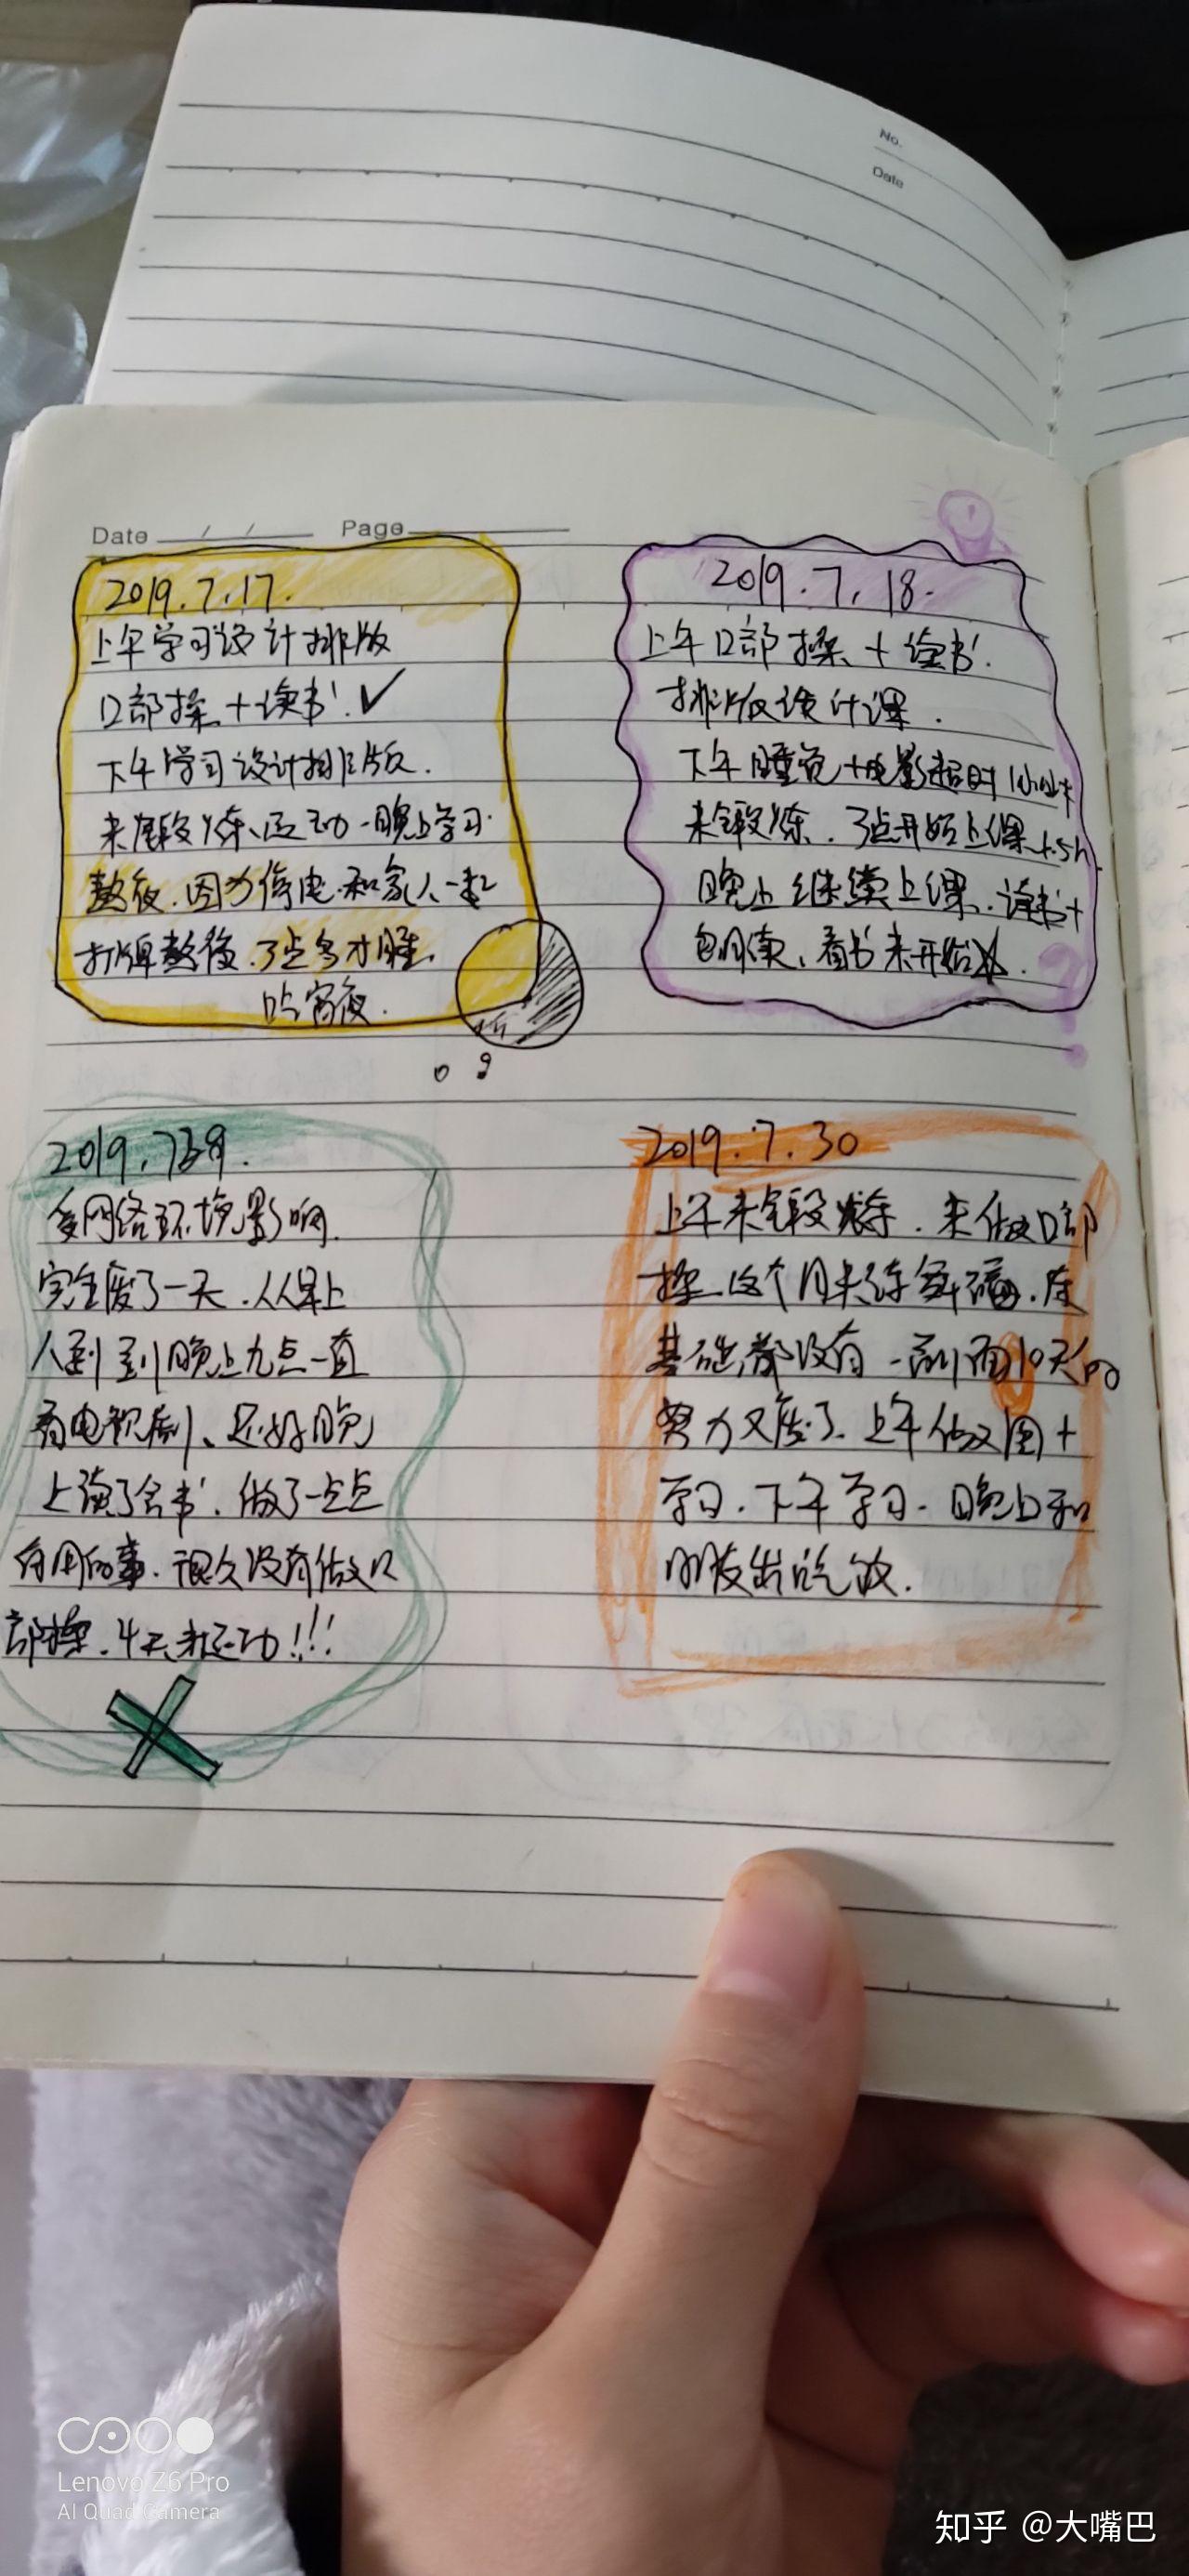 No.
Date
Date / / Page
2019.7.17.
上午学习设计排版
口部操+读书.✓
下午学习设计排版.
未锻炼、运动.晚上学习.
熬夜.因为停电.和家人一起
打牌熬夜.3点多才睡.
吃宵夜.
2019.7.18.
上午口部操+读书.
排版设计课.
下午睡觉+电影超时1小时
未锻炼.3点开始上课1.5h
晚上继续上课.读书+
朗读、看书未开始
2019.7.29.
受网络环境影响
完全废了一天.从早上
到晚上九点一直
看电视剧、还好晚
上读了会书.做了一点点
有用的事.很久没有做口
部操.4天未运动!!!
2019.7.30
上午未锻炼.未做口部
操.这个月未练舞蹈.
基础都没有.前面10天的
努力又废了.上午做图+
学习.下午学习.晚上和
朋友出吃饭.
Lenovo Z6 Pro
AI Quad Camera
知乎 @大嘴巴